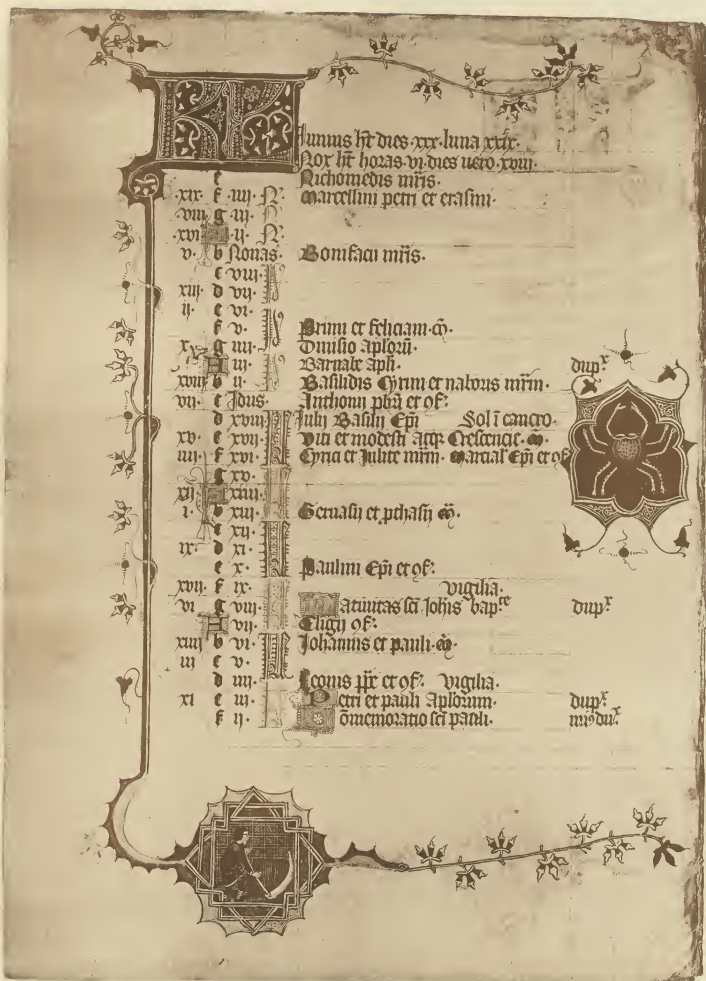 KL Junius ht dies xxx luna xxix.
Nox ht horas vi dies uero xviii.
e Nichomedis mris.
xix f iiii N Marcellini petri et erasmi.
viii g iii N
xvi A ii N
v b Nonas Bonifacii mris.
c viii I
xiii d vii I
ii e vi I
f v I Primi et feliciani m.
x g iiii I Diuisio aplorum
A iii I Barnabe apli. dupx
xviii b ii I Basilidis Cyrini et nabors mrm.
vii c Idus Anthonii pbri et of.
d xviii K Iulii Basilii Epi Sol i cancro.
xv e xvii K Viti et modesti atqz Crescencie m.
iiii f xvi K Cyrici et Iulite mrm. Marcial Epi et of
g xv K
xii A xiiii K
i b xiii K Geruasii et pthasii m.
c xii K
ix d xi K
e x K Paulini Epi et of.
xvii f ix K vigilia.
vi g viii K Natiuitas sci Johis bapte dupx
A vii K Eligii of.
xiiii b vi K Johannis et pauli m.
iii c v K
d iiii K Leonis ppe et of. vigilia.
xi e iii K Petri et pauli Aplorum. dupx
f ii K Comemoratio sci pauli. mi9 dux